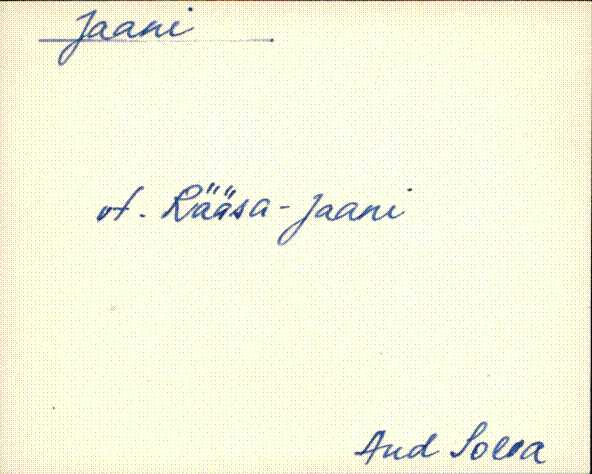 Jaani
vt. Rääsa-Jaani
And Solba